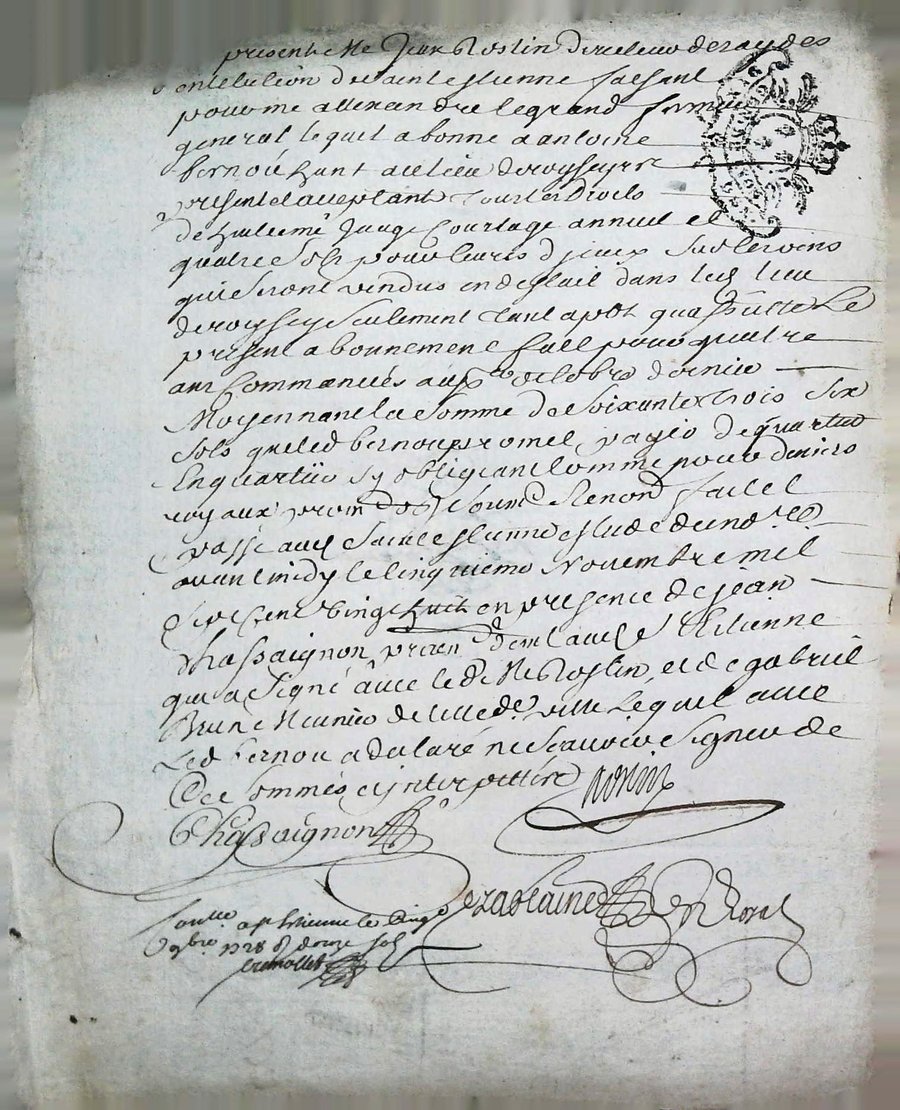 present Me Jean Rostin Directeur des aydes
en lelection de saint estienne faisant
pour me allexandre legrand fermier
general lequel a bonne a antoine
bernou hant au lieu de royseyrs
present et acceptant tous les Droits
de huitieme Jauge Courtage annuel et
quatre solz pour Livres d jceux sur les vins
qui seront vendus en destail dans led lieu
de roysey seulement tant a pot qua assiette Le
present abonnement fait pour quatre
ans Commancés au per octobre dernier
Moyennant la somme de soixante trois Six
sols que led bernou promet payer de quartier
En quartier sy obligeant Comme pour deniers
royaux proin oblig soumd Renond fait et
passé aud Saint estienne estude du nore
avant midy le Cinquieme Novembre mil
Sept Cent Vingt huit en presence de jean
Chassaignon praen demt aud St Estienne
qui a Signé avec led Me Rostin, et de gabriel
Brun Meunier de lad ville Lequel avec
Led bernou a declaré ne scavoir Signer de
Ce sommés et interpellés
Rostin
Chassaignon
Delablaine
Conlle a St Estienne le Cinq
9bre 1728 R douze sol